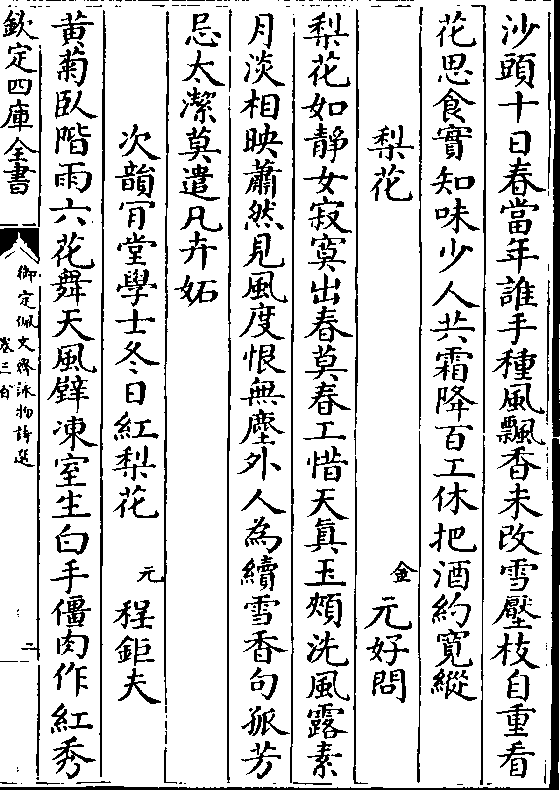 沙頭十日春當年誰手種風飄香未改雪壓枝自重看
花思食實知味少人共霜降百工休把酒約寬縱
梨花
金 元好問
梨花如靜女寂寞出春莫春工惜天真玉頰洗風露素
月淡相映蕭然見風度恨無塵外人為續雪香句孤芳
忌太潔莫遣凡卉妬
次韻肎堂學士冬日紅梨花
元 程鉅夫
黄菊臥階雨六花舞天風躄凍室生白手僵肉作紅秀
欽定四庫全書
御定佩文齋詠物詩選
卷三百
二